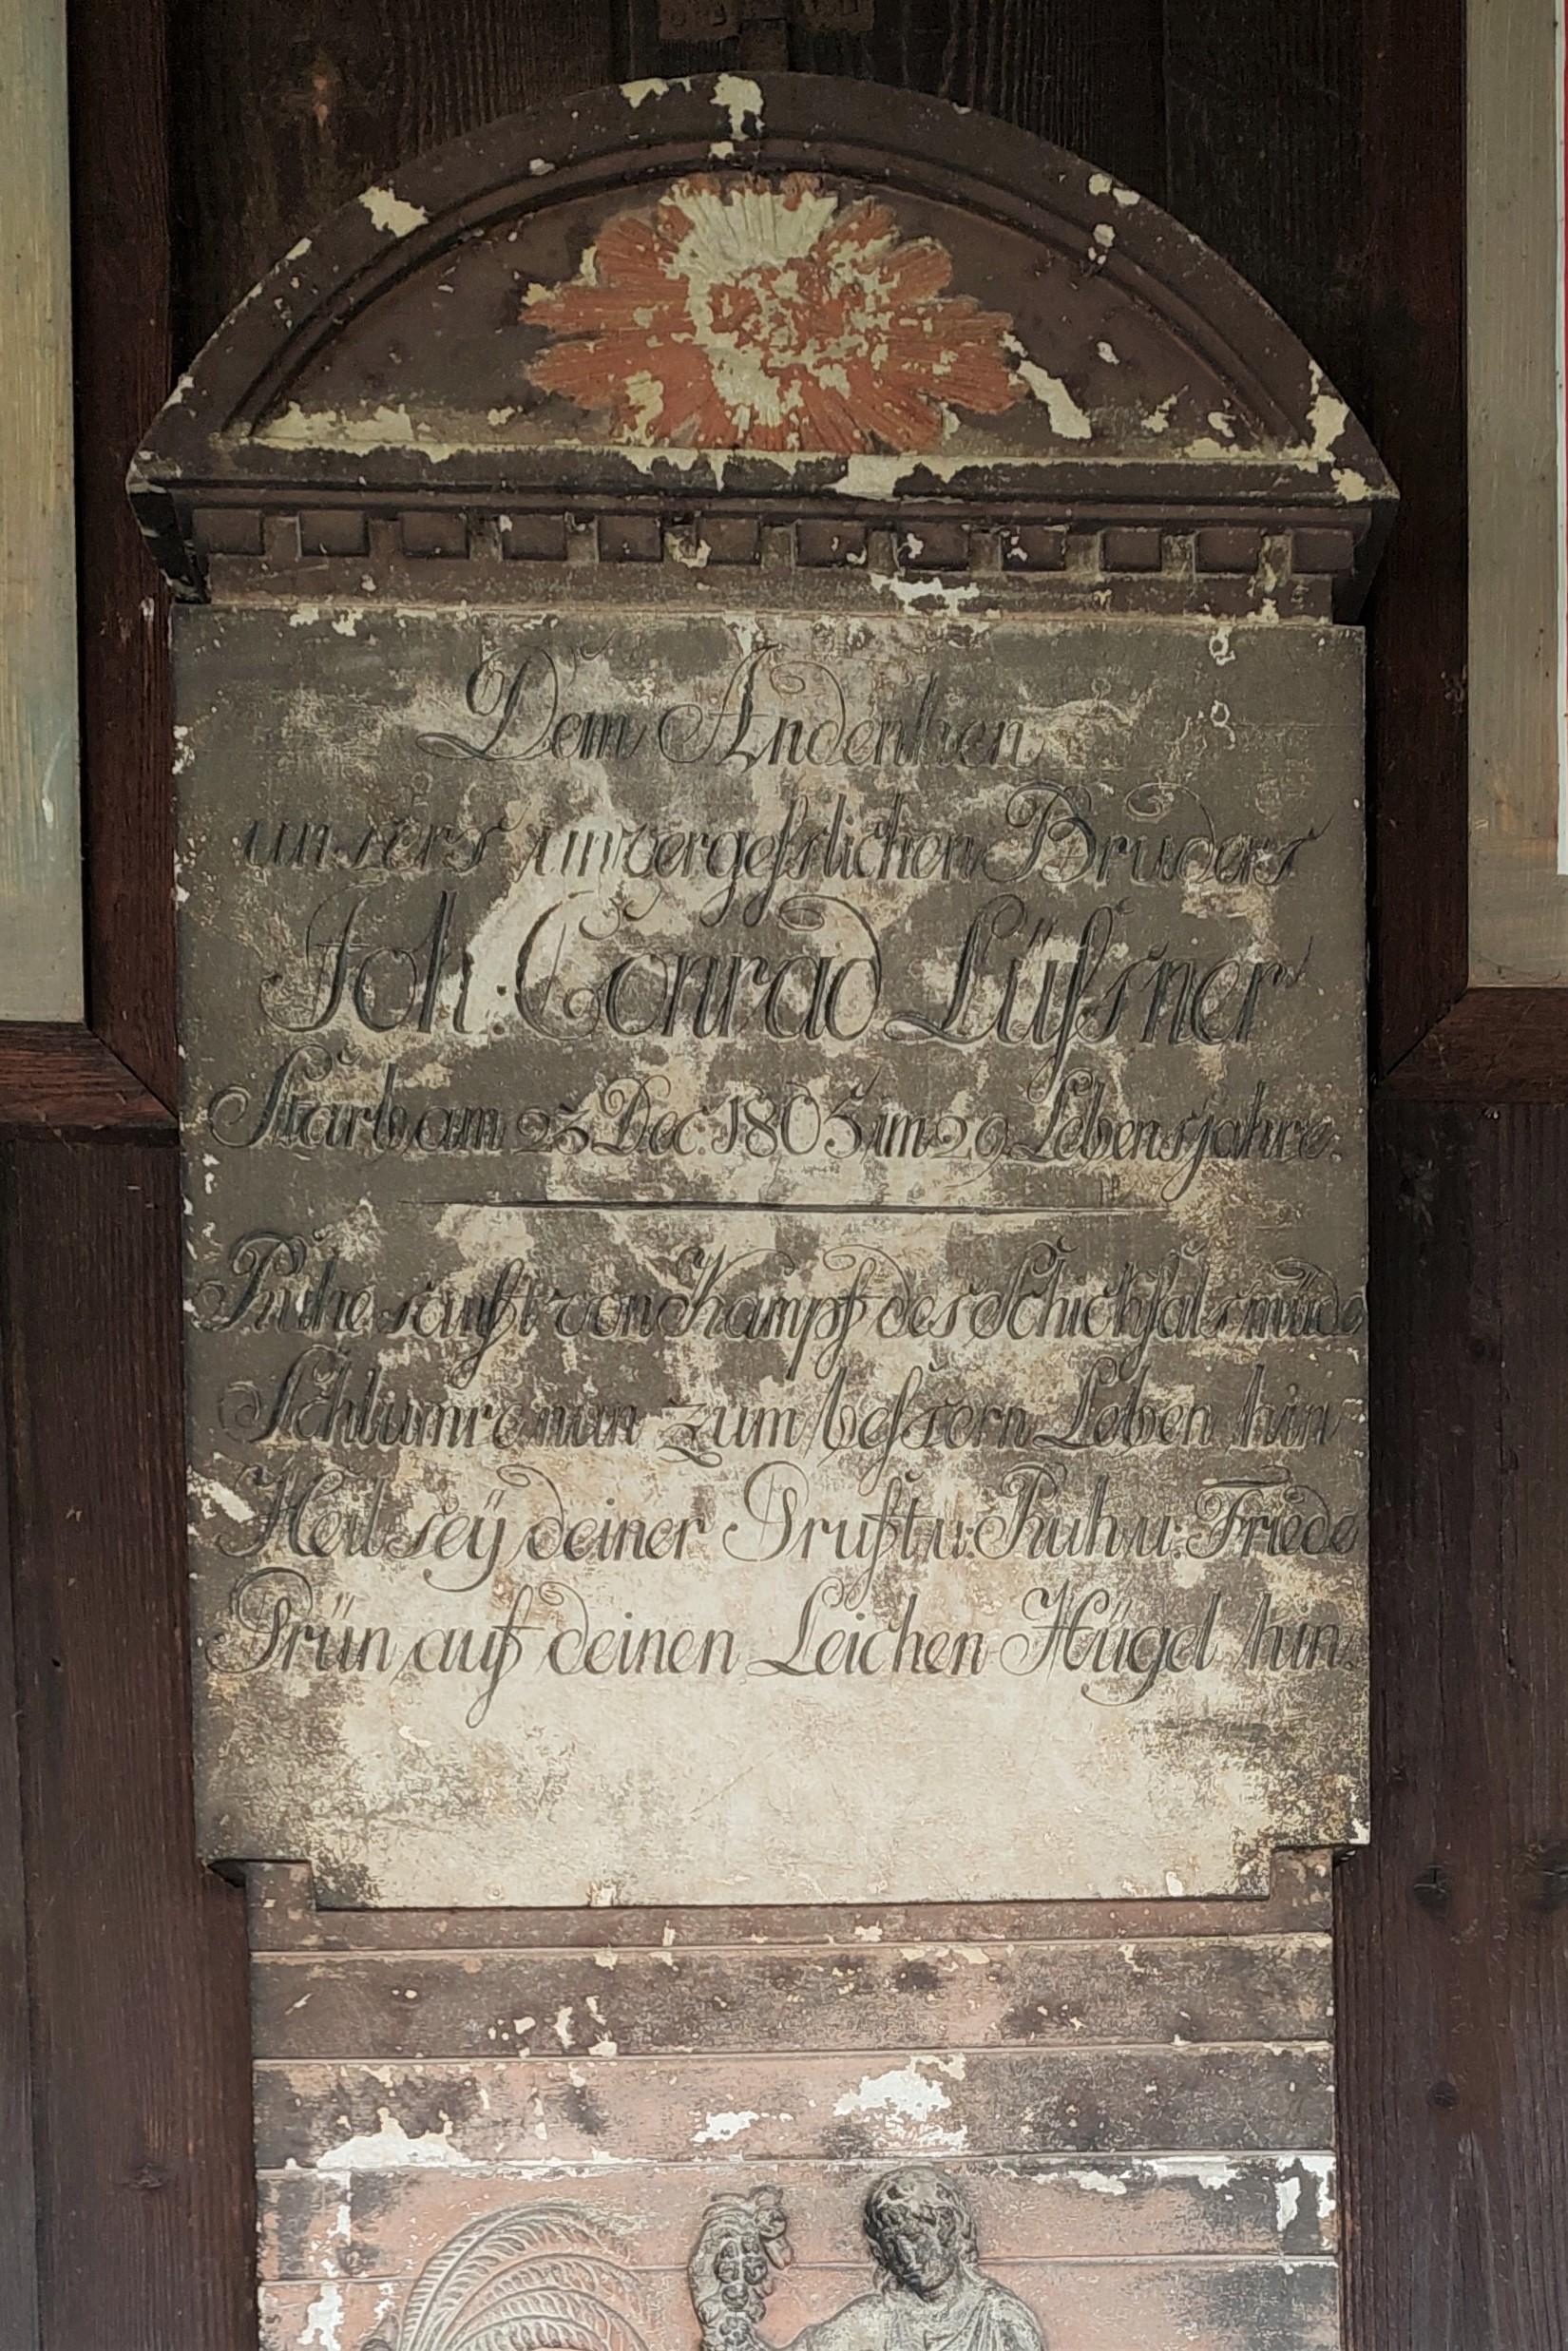 Dem Andenken
unsers unvergeßlichen Bruders
Joh: Conrad Lüßner
Starb am 23 Dec: 1805 im 29 Lebensjahre.
Ruhe sanft von Kampf des Schicksals müde
Schlumre nun zum beßern Leben hin
Heil seÿ deiner Gruft u: Ruh u: Friede
Grün auf deinen Leichen Hügel hin.